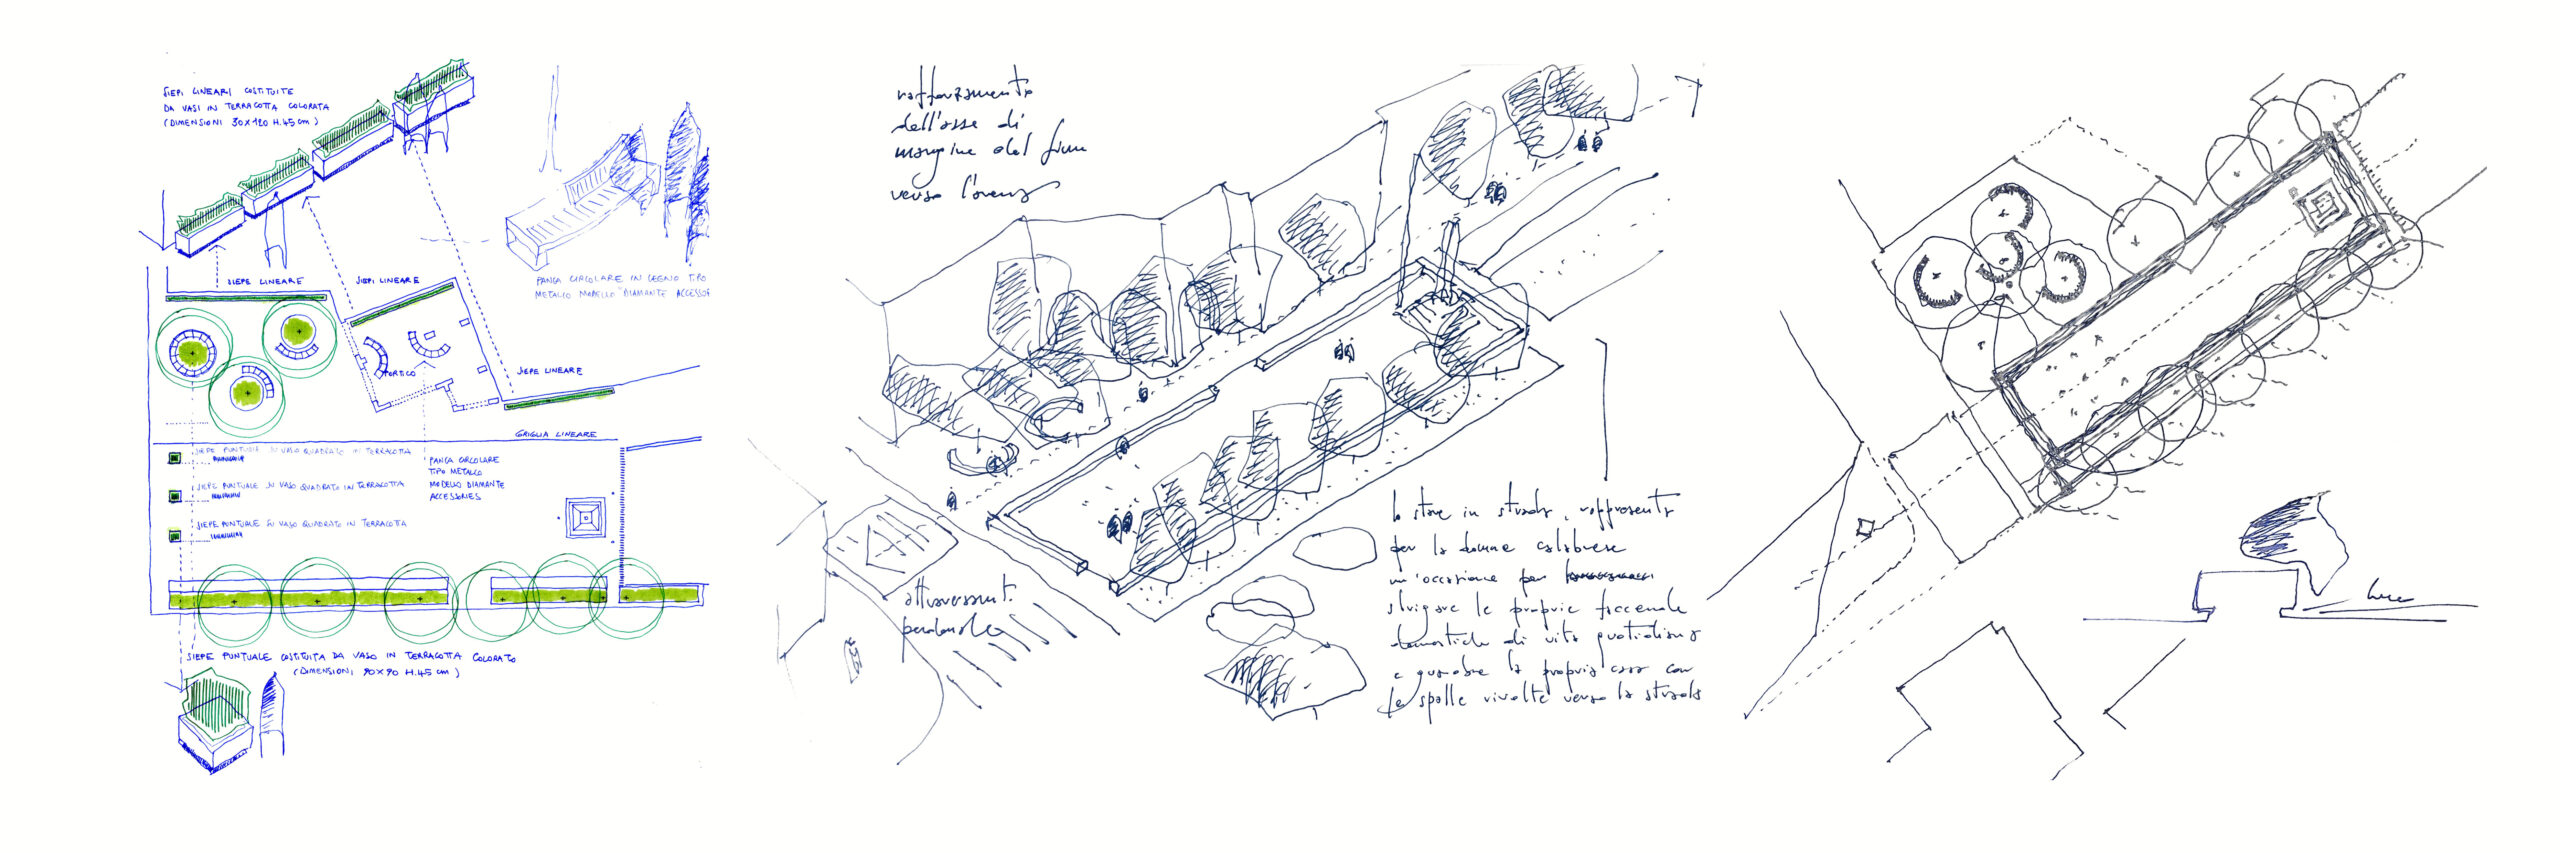 SIEPI LINEARI COSTITUITE
DA VASI IN TERRACOTTA COLORATA
(DIMENSIONI 30X120 H.45 cm)
PANCA CIRCOLARE IN LEGNO TIPO
METALCO MODELLO "DIAMANTE ACCESSOR
SIEPE LINEARE
SIEPI LINEARE
PORTICO
SIEPE LINEARE
GRIGLIA LINEARE
SIEPE PUNTUALE SU VASO QUADRATO IN TERRACOTTA
SIEPE PUNTUALE SU VASO QUADRATO IN TERRACOTTA
SIEPE PUNTUALE SU VASO QUADRATO IN TERRACOTTA
PANCA CIRCOLARE
TIPO METALCO
MODELLO DIAMANTE
ACCESSORIES
SIEPE PUNTUALE COSTITUITA DA VASO IN TERRACOTTA COLORATO
(DIMENSIONI 90X90 H.45 cm)
rafforzamento
dell'asse di
margine del fiume
verso l'arena
attraversament.
pedonale
lo stare in strada, rappresenta
per la donna calabrese
un'occasione per
sbrigare le proprie faccende
domestiche di vita quotidiana
e guardare la propria casa con
le spalle rivolte verso la strada
luce